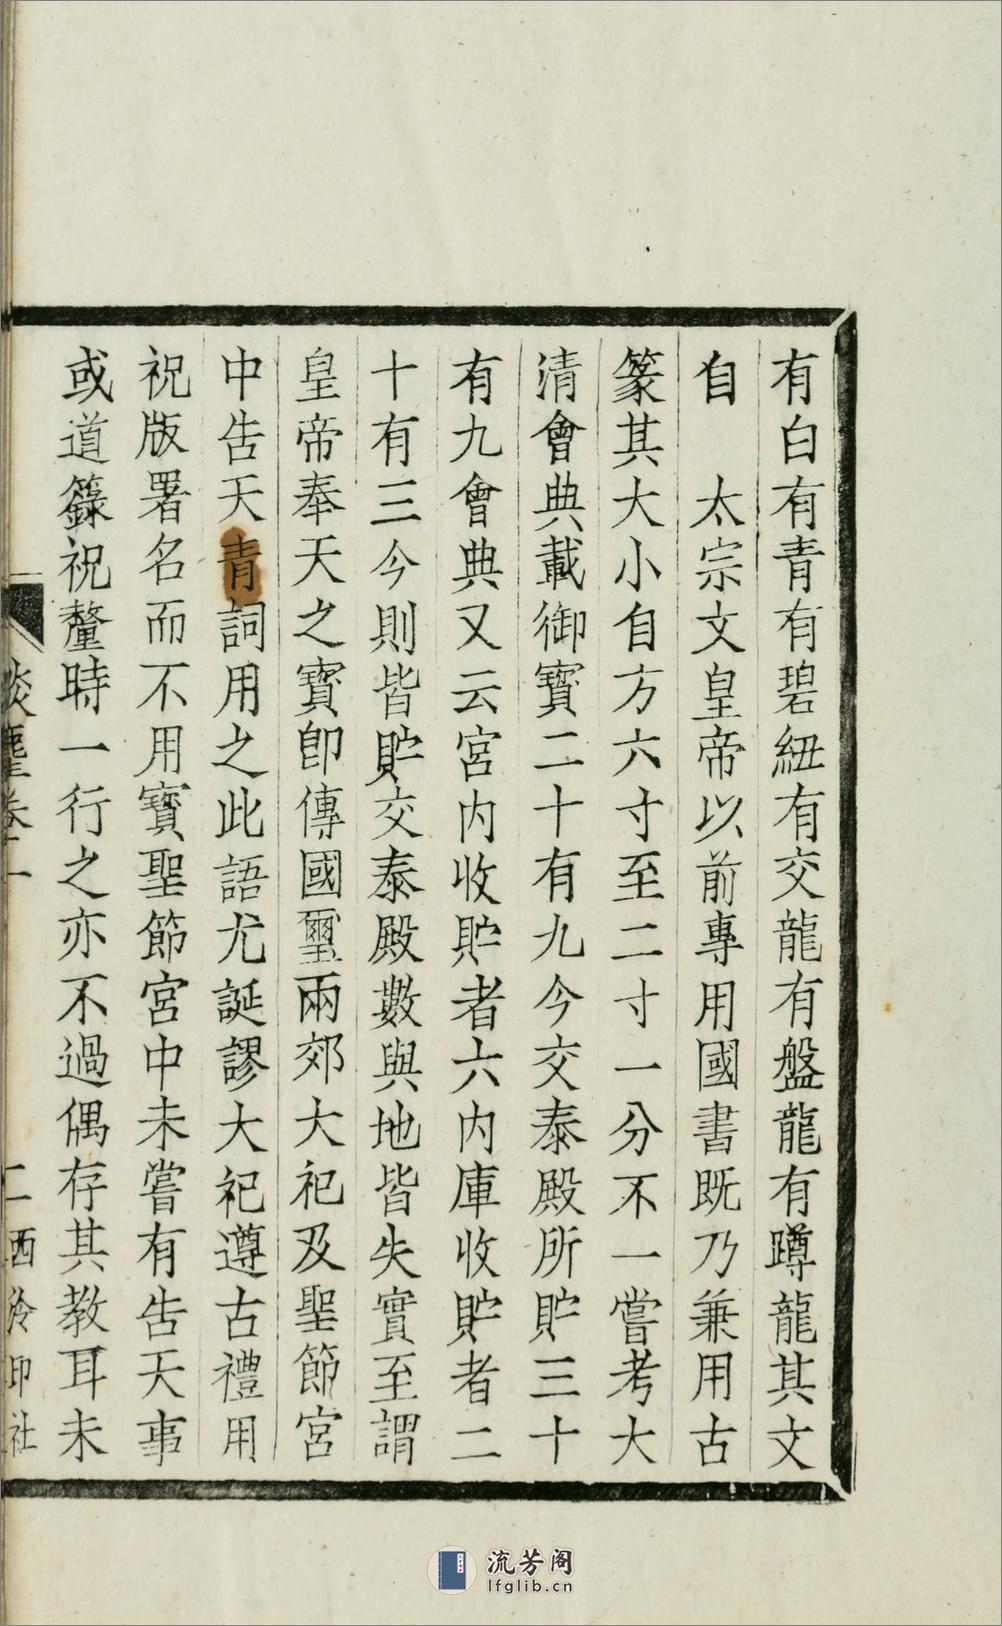 有白有青有碧紐有交龍有盤龍有蹲龍其文
自　太宗文皇帝以前專用國書既乃兼用古
篆其大小自方六寸至二寸一分不一嘗考大
清會典載御寶二十有九今交泰殿所貯三十
有九會典又云宮内收貯者六内庫收貯者二
十有三今則皆貯交泰殿數與地皆失實至謂
皇帝奉天之寶卽傳國璽兩郊大祀及聖節宮
中告天青詞用之此語尤誕謬大祀遵古禮用
祝版署名而不用寶聖節宮中未嘗有告天事
或道籙祝釐時一行之亦不過偶存其教耳未
談麈卷一
二西泠印社
流芳阁
lfglib.cn